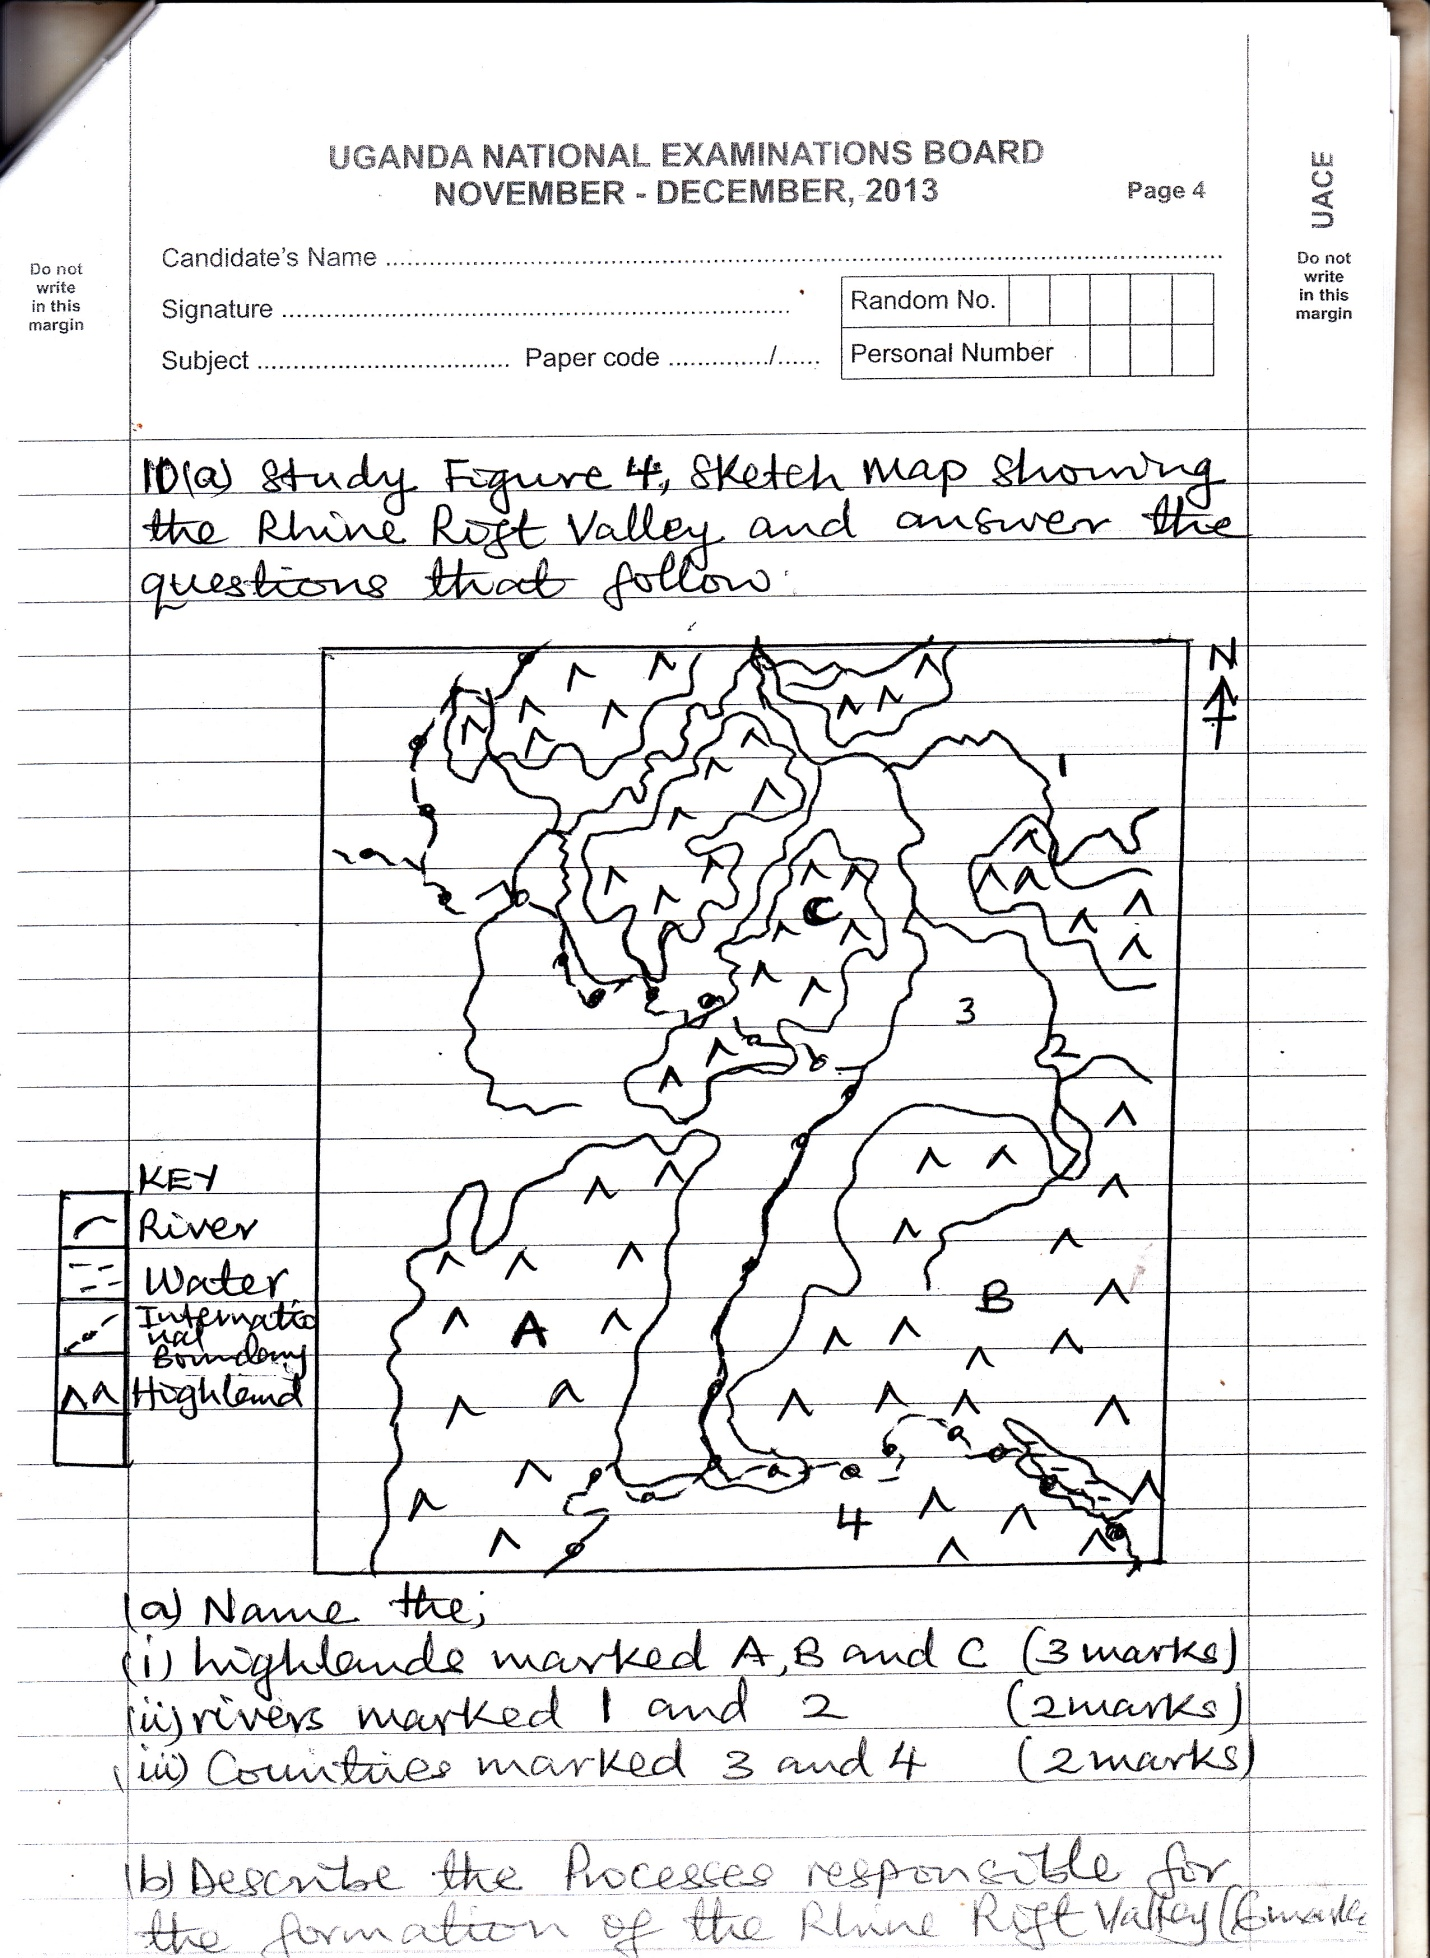 UGANDA NATIONAL EXAMINATIONS BOARD
NOVEMBER - DECEMBER, 2013
Page 4
UACE
Do not
write
in this
margin
Candidate's Name
Signature
Random No.
Subject Paper code /
Personal Number
Do not
write
in this
margin
10(a) Study Figure 4, Sketch map showing
the Rhine Rift Valley and answer the
questions that follow:
N
1
C
3
2
KEY
River
Water
Internatio
nal
Boundary
Highland
A
B
4
(a) Name the;
(i) highlands marked A, B and C (3 marks)
(ii) rivers marked 1 and 2 (2 marks)
(iii) Countries marked 3 and 4 (2 marks)
(b) Describe the Processes responsible for
the formation of the Rhine Rift Valley (6 marks